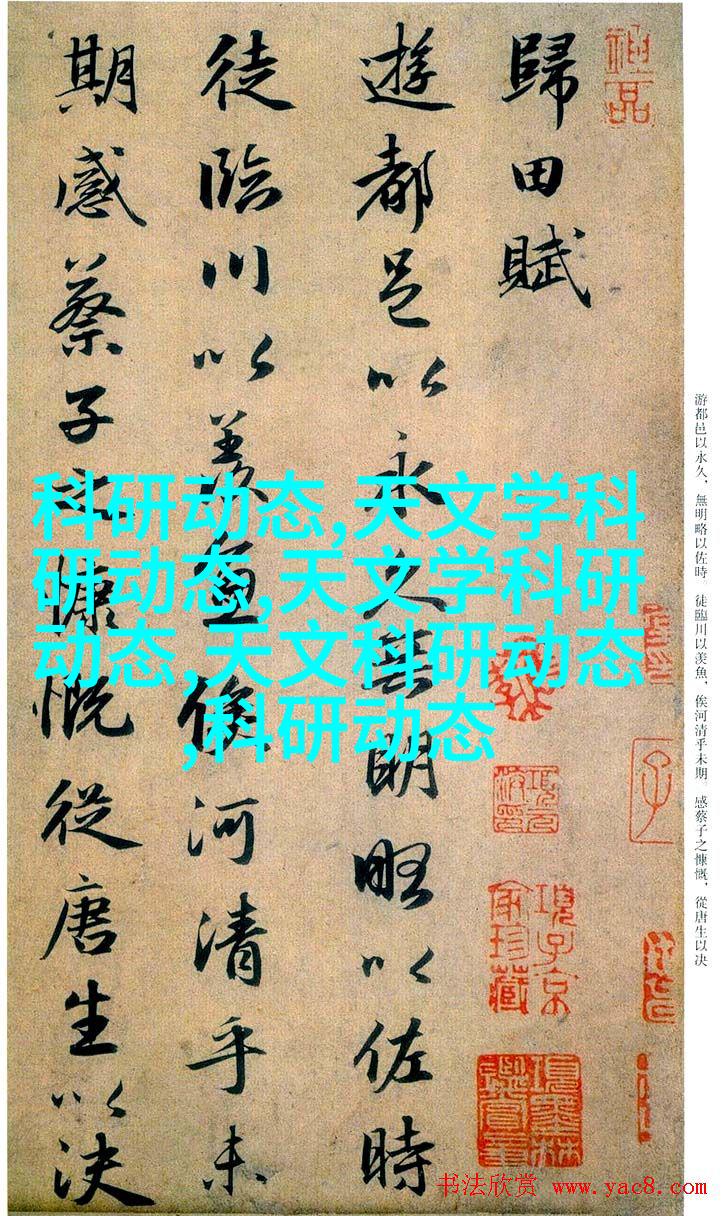 歸田賦
遊都邑以永久無明略以佐時
徒臨川以羨魚俟河清乎未
期感蔡子之慷慨從唐生以决
科研动态,天文学科
研动态,天文学科研
动态,天文科研动态
,科研动态
游都邑以永久，無明略以佐時。徒臨川以羨魚，俟河清乎未期。感蔡子之慷慨，從唐生以决
項子京
家珍藏
項墨林
鑑賞章
书法欣赏 www.yac8.com